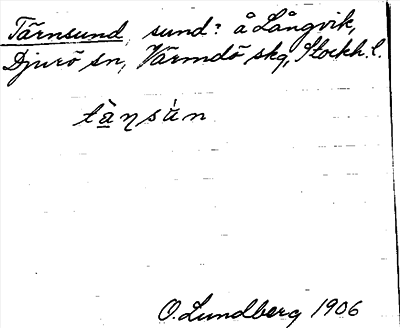 Tärnsund, sund: å Långvik,
Djurö sn, Värmdö skg, Stockh. l.
tа̀ŋsùn
O. Lundberg 1906